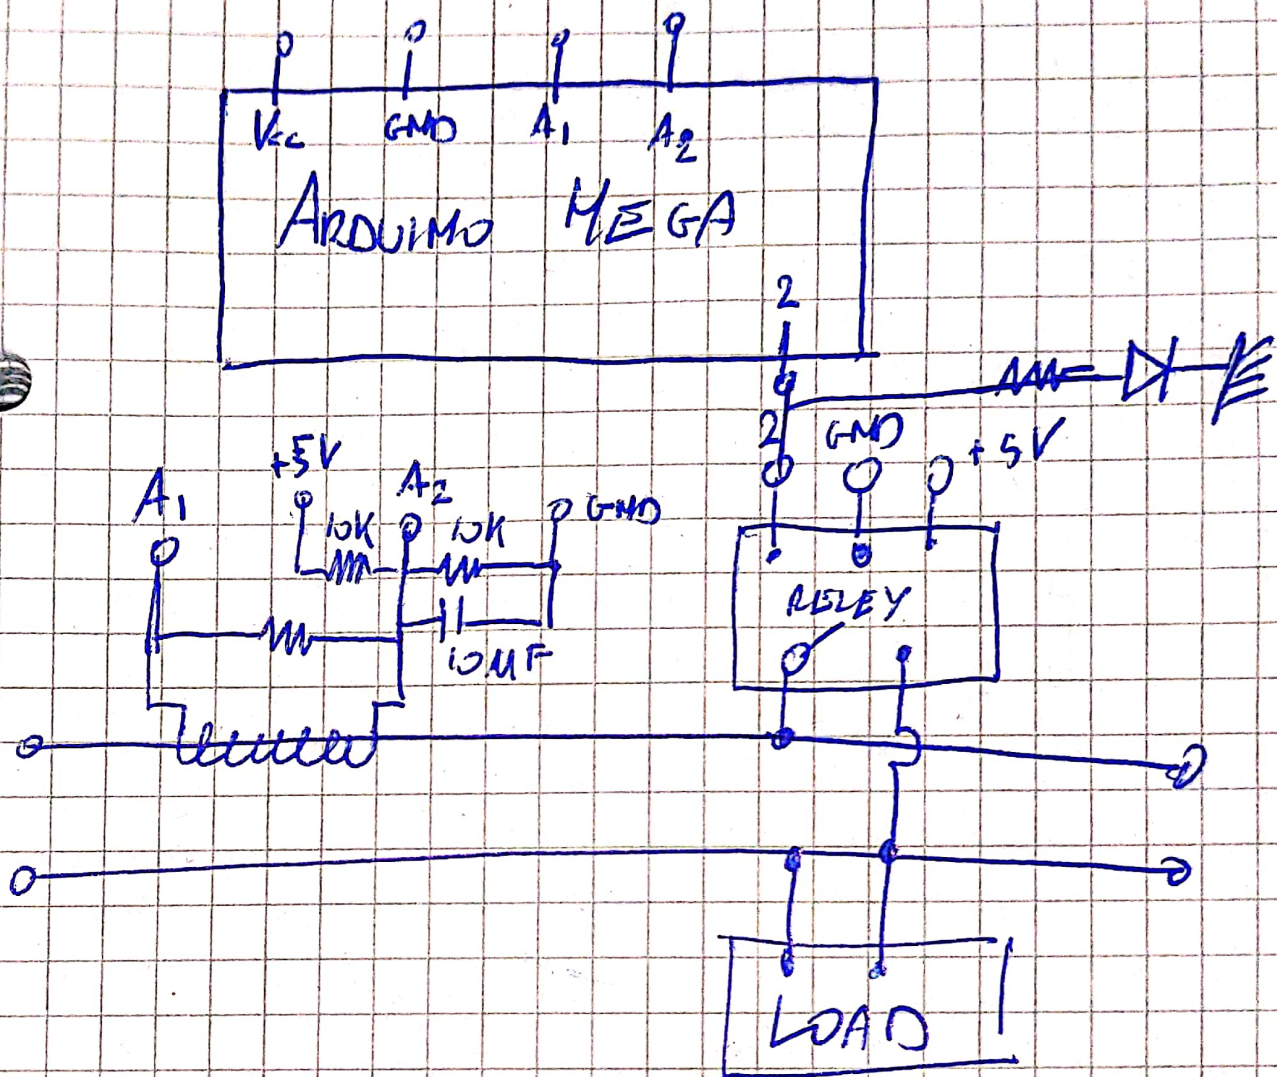 Vcc GND A1 A2
ARDUINO MEGA
2
2 GND +5V
A1 +5V A2 GND
10K 10K
RELEY
10µF
LOAD